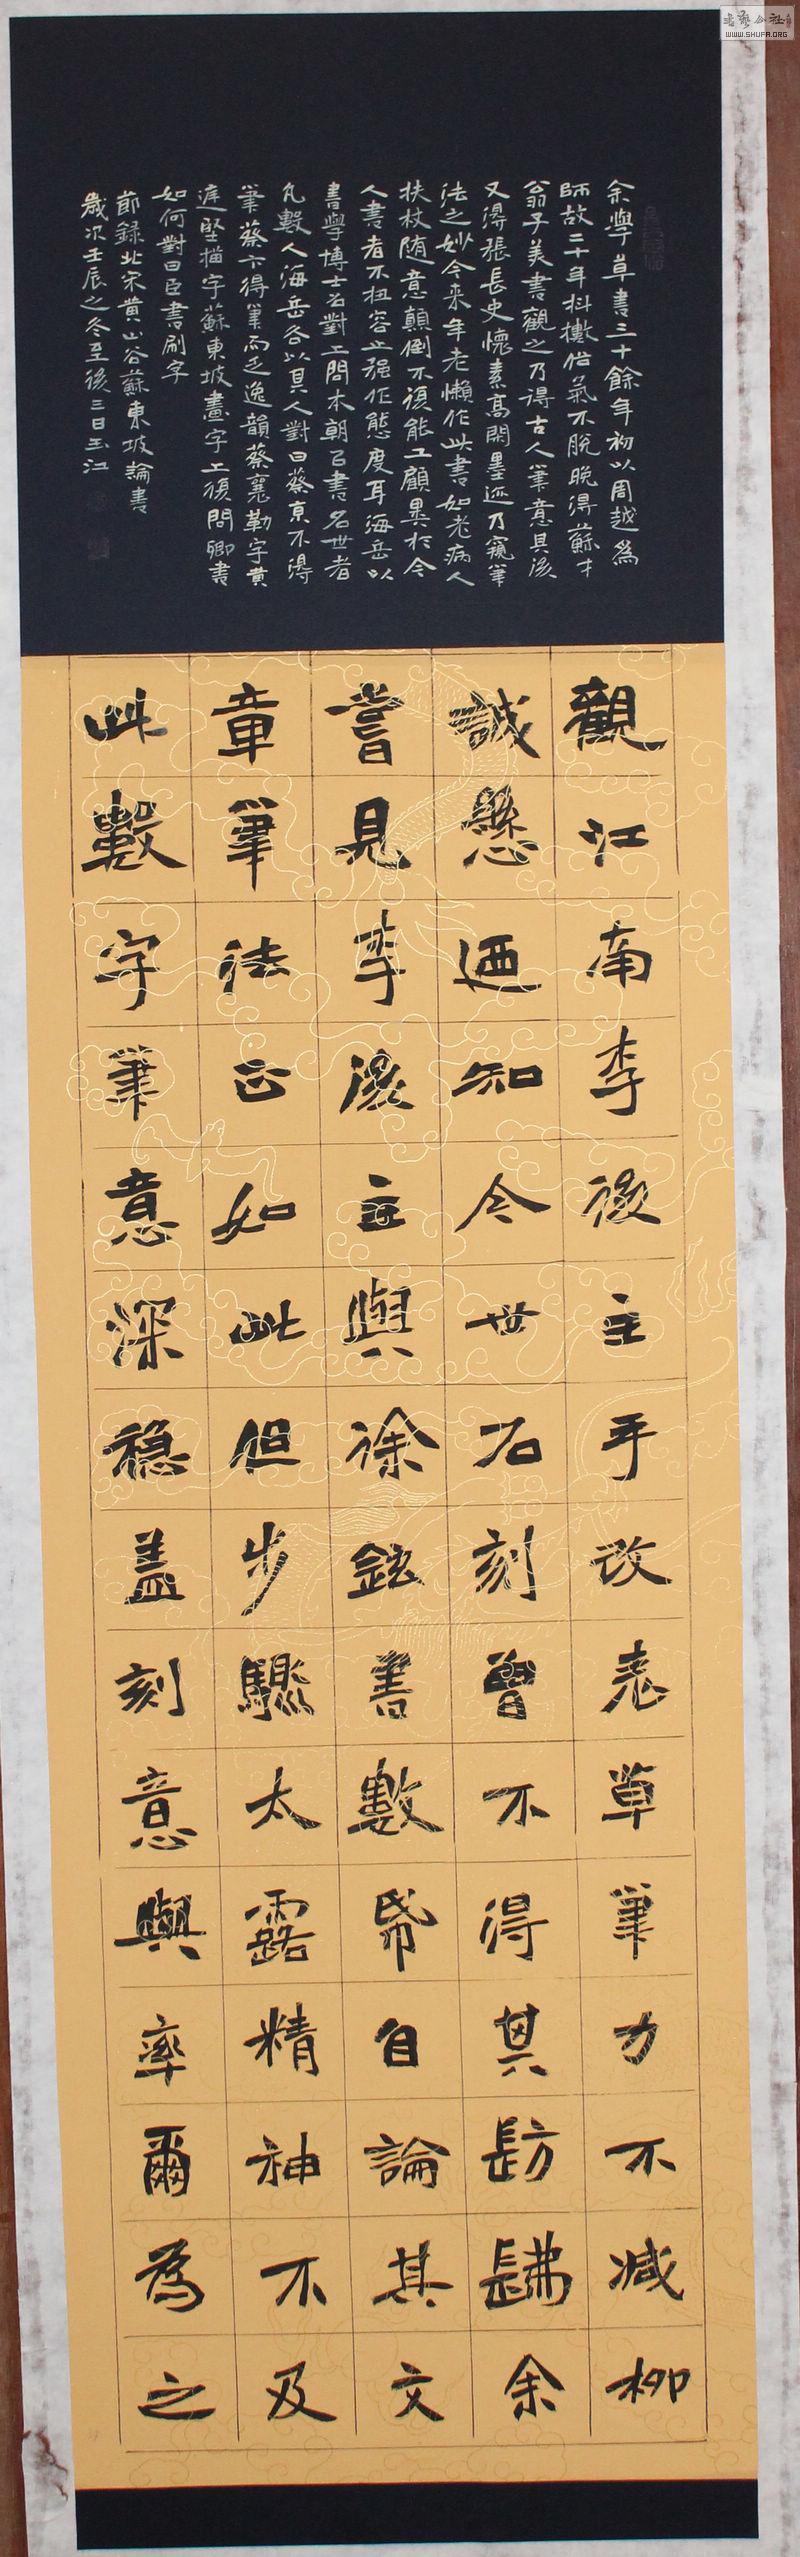 書藝公社
WWW.SHUFA.ORG
余學草書三十餘年初以周越為
師故二十年抖擻俗氣不脫晚得蘇才
翁子美書觀之乃得古人筆意其後
又得張長史懷素高閑墨迹乃窺筆
法之妙今来年老懶作此書如老病人
扶杖随意顛倒不復能工顧異於今
人書者不扭容止强作態度耳海岳以
書學博士召對上問本朝以書名世者
凡數人海岳各以其人對曰蔡京不得
筆蔡卞得筆而乏逸韻蔡襄勒字黄
庭堅描字蘇東坡畫字上復問卿書
如何對曰臣書刷字
節録北宋黄山谷蘇東坡論書
歲次壬辰之冬至後三日玉江
觀江南李後主手改表草筆力不减柳
誠懸迺知今世石刻曾不得其髣髴余
嘗見李後主與徐鉉書數帋自論其文
章筆法正如此但步驟太露精神不及
此數字筆意深穩蓋刻意與率爾為之